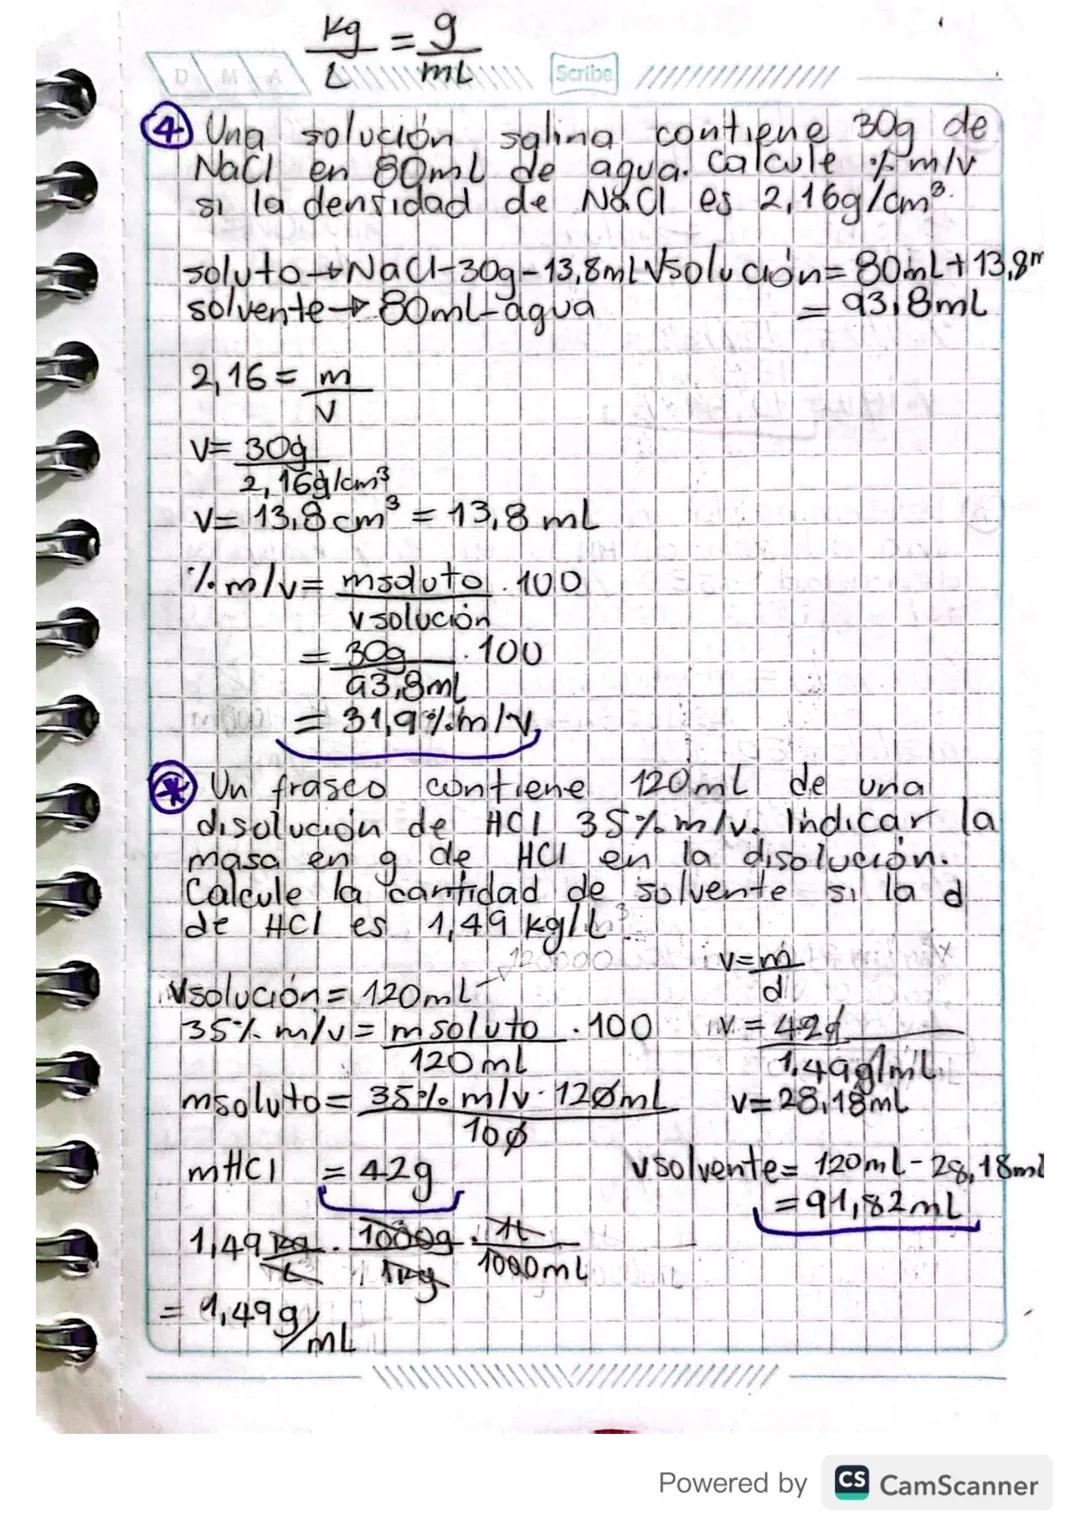 kg/L = g/mL
D M A Scribe
④ Una solución salina contiene 30g de
NaCl en 80mL de agua. Calcule % m/v
si la densidad de NaCl es 2,16g/cm³.
soluto → NaCl-30g-13,8mL Vsolución= 80mL+13,8m
solvente → 80mL-agua = 93,8mL
2,16 = m/V
V= 30g/2,16g/cm³
V= 13,8cm³ = 13,8 mL
% m/v = msoluto/v solución . 100
= 30g/93,8mL . 100
= 31,9% m/v
* Un frasco contiene 120mL de una
disolución de HCl 35% m/v. Indicar la
masa en g de HCl en la disolución.
Calcule la cantidad de solvente si la d
de HCl es 1,49 kg/L
Vsolución = 120mL
35% m/v = m soluto/120mL . 100
msoluto = 35% m/v . 120mL/100
mHCl = 42g
1,49 kg/L . 1000g/1kg . 1L/1000mL
= 1,49g/mL
v=m/d
v = 42g/1,49g/mL
v=28,18mL
v solvente = 120mL-28,18ml
= 91,82mL
Powered by CS CamScanner